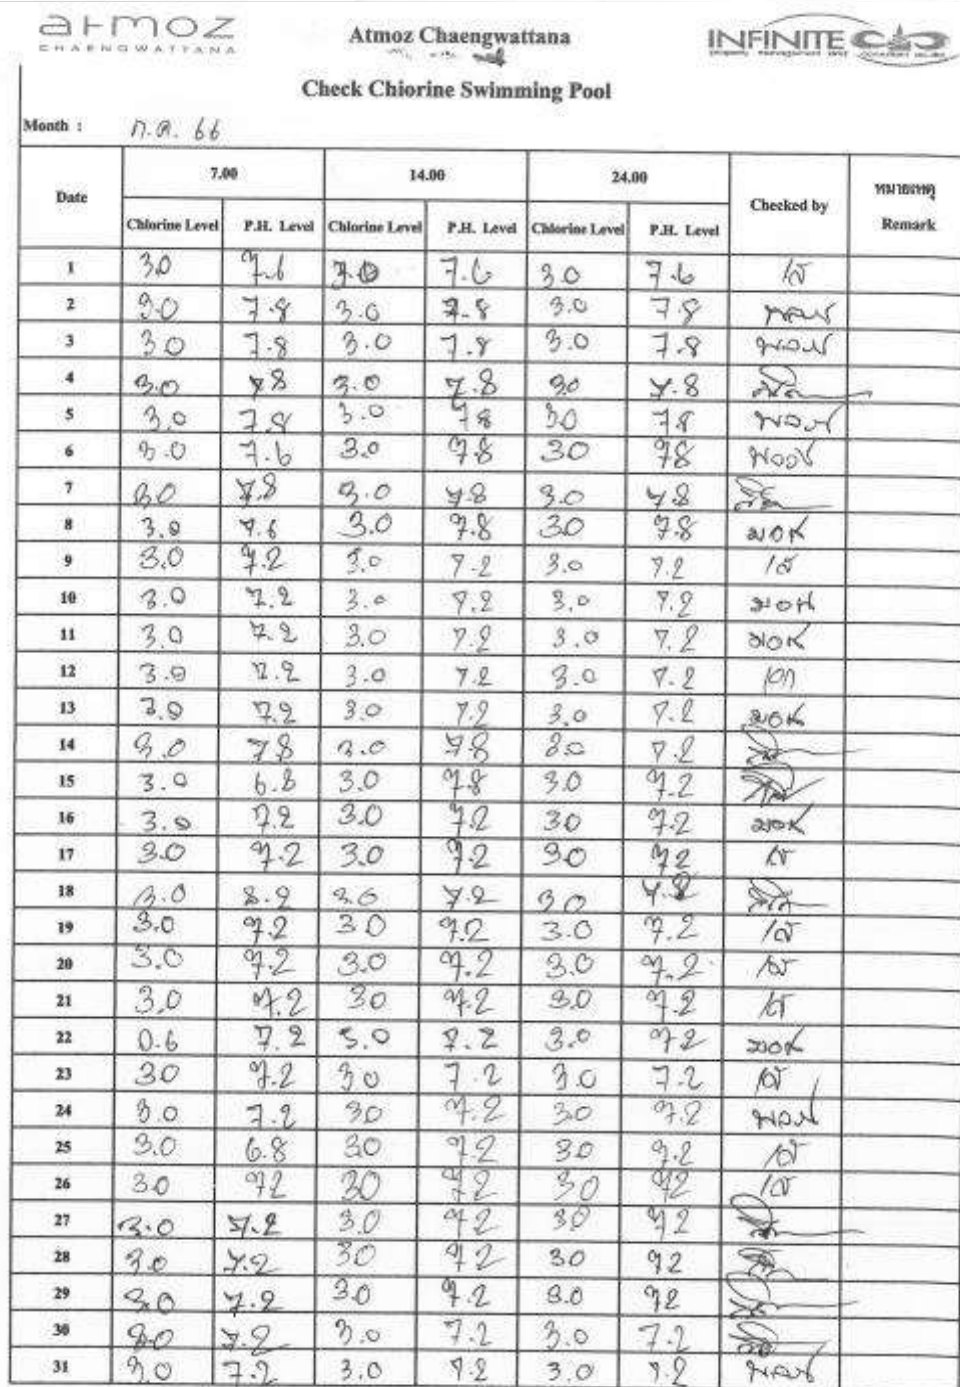 atmoz
CHAENGWATTANA
Atmoz Chaengwattana
INFINITE
Check Chiorine Swimming Pool
Month : ก.ค. 66
Date 7.00 14.00 24.00 Checked by หมายเหตุ Remark
Chlorine Level P.H. Level Chlorine Level P.H. Level Chlorine Level P.H. Level
1 3.0 7.6 3.0 7.6 3.0 7.6
2 3.0 7.8 3.0 7.8 3.0 7.8
3 3.0 7.8 3.0 7.8 3.0 7.8
4 3.0 7.8 3.0 7.8 3.0 7.8
5 3.0 7.8 3.0 7.8 3.0 7.8
6 3.0 7.6 3.0 7.8 30 78
7 3.0 7.8 3.0 7.8 3.0 7.8
8 3.0 7.6 3.0 7.8 30 7.8
9 3.0 7.2 3.0 7.2 3.0 7.2
10 3.0 7.2 3.0 7.2 3.0 7.2
11 3.0 7.2 3.0 7.2 3.0 7.2
12 3.0 7.2 3.0 7.2 3.0 7.2
13 3.0 7.2 3.0 7.2 3.0 7.2
14 3.0 7.8 3.0 7.8 3.0 7.2
15 3.0 6.8 3.0 7.8 3.0 7.2
16 3.0 7.2 3.0 7.2 30 7.2
17 3.0 7.2 3.0 7.2 30 72
18 3.0 3.0 7.2 3.0
19 3.0 7.2 30 7.2 3.0 7.2
20 3.0 7.2 3.0 7.2 3.0 7.2
21 3.0 7.2 30 7.2 3.0 7.2
22 0.6 7.2 3.0 7.2 3.0 7.2
23 30 7.2 30 7.2 3.0 7.2
24 3.0 7.2 30 7.2 3.0 7.2
25 3.0 6.8 30 72 30 7.2
26 30 72 30 72 30 72
27 3.0 7.2 3.0 72 30 72
28 3.0 7.2 30 72 30 72
29 3.0 7.2 3.0 7.2 3.0 72
30 3.0 7.2 3.0 7.2 3.0 7.2
31 3.0 7.2 3.0 7.2 3.0 7.2